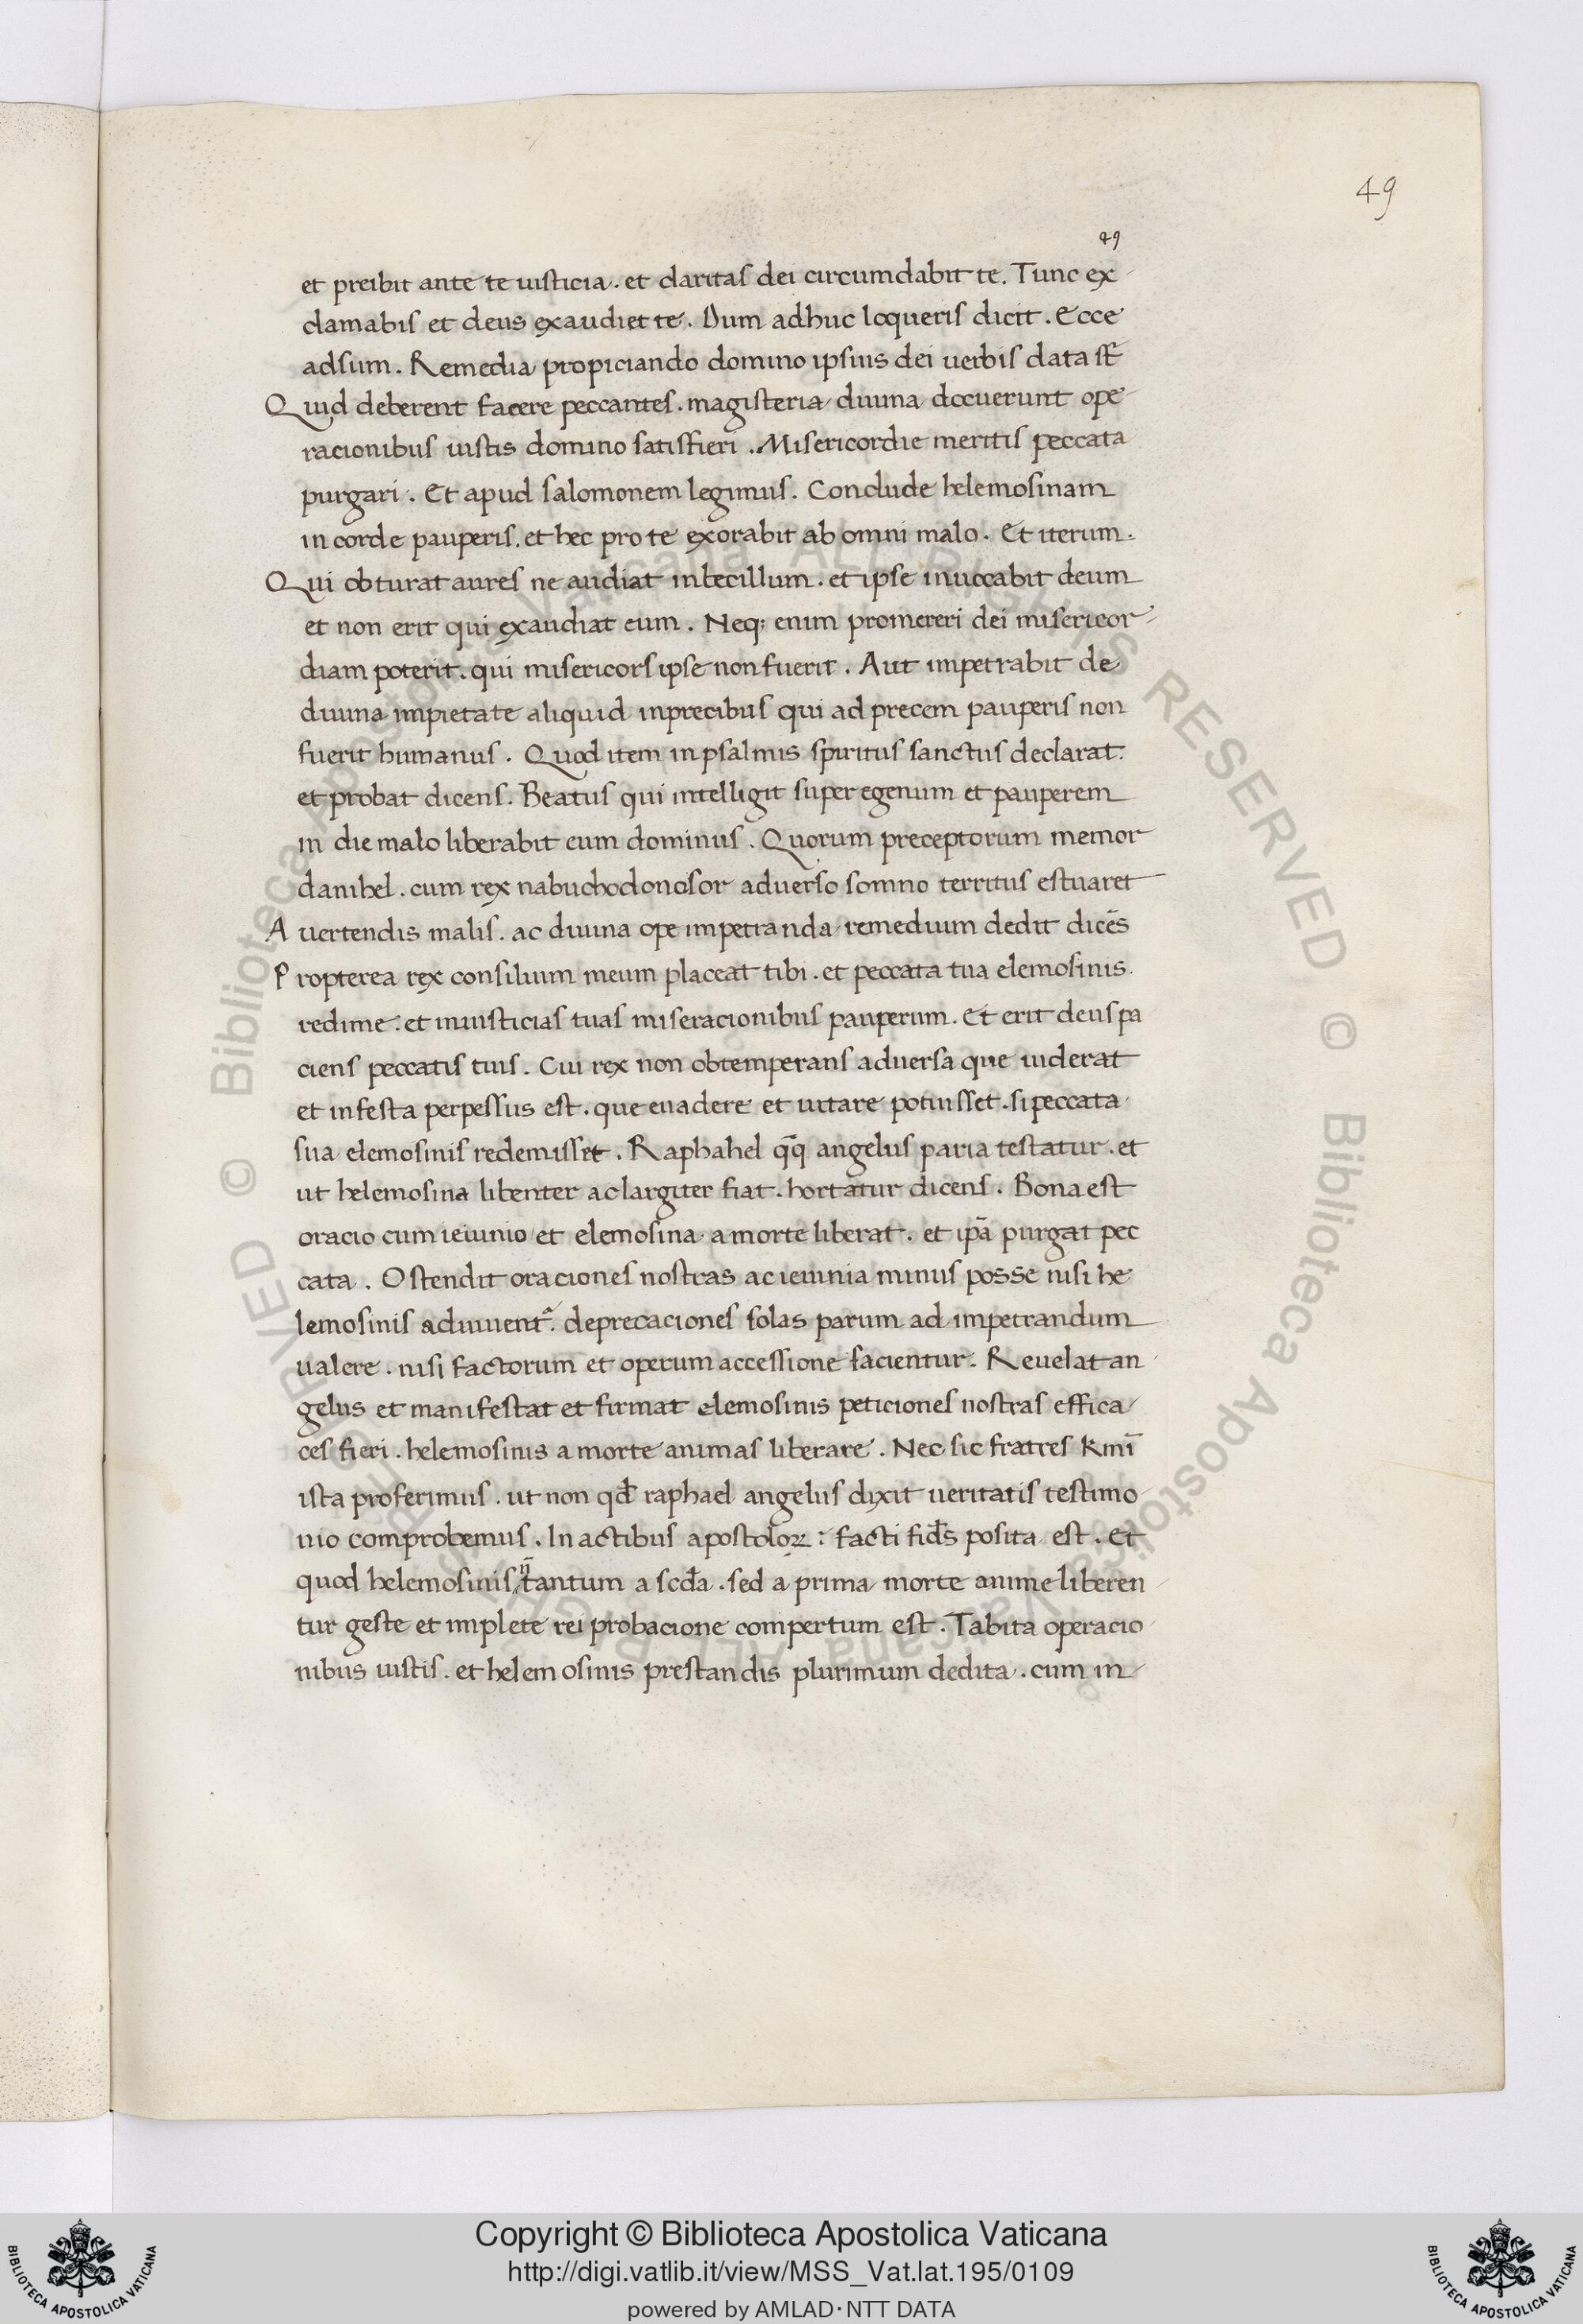 49
49
et preibit ante te iusticia. et claritas dei circumdabit te. Tunc ex
clamabis et deus exaudiet te. Dum adhuc loqueris dicit. Ecce
adsum. Remedia propiciando domino ipsius dei uerbis data st̄
Quid deberent facere peccantes. magisteria diuina docuerunt ope
racionibus iustis domino satisfieri. Misericordie meritis peccata
purgari. Et apud salomonem legimus. Conclude helemosinam
in corde pauperis. et hec pro te exorabit ab omni malo. Et iterum.
Qui obturat aures ne audiat inbecillum. et ipse inuocabit deum
et non erit qui exaudiat eum. Neq; enim promereri dei misericor
diam poterit. qui misericors ipse non fuerit. Aut impetrabit de
diuina impietate aliquid inprecibus qui ad precem pauperis non
fuerit humanus. Quod item in psalmis spiritus sanctus declarat.
et probat dicens. Beatus qui intelligit super egenum et pauperem
in die malo liberabit eum dominus. Quorum preceptorum memor
danihel. cum rex nabuchodonosor aduerso somno territus estuaret
Auertendis malis. ac diuina ope impetranda remedium dedit dicēs
Propterea rex consilium meum placeat tibi. et peccata tua elemosinis
redime. et iniusticias tuas miseracionibus pauperum. Et erit deus pa
ciens peccatis tuis. Cui rex non obtemperans aduersa que uiderat
et infesta perpessus est. que euadere et uitare potuisset. si peccata
sua elemosinis redemisset. Raphahel qq̄ angelus paria testatur. et
ut helemosina libenter ac largiter fiat. hortatur dicens. Bona est
oracio cum ieiunio et elemosina a morte liberat. et ip̄a purgat pec
cata. Ostendit oraciones nostras ac ieiunia minus posse nisi he
lemosinis adiuuent᷑. deprecaciones solas parum ad impetrandum
ualere. nisi factorum et operum accessione facientur. Reuelat an
gelus et manifestat et firmat elemosinis peticiones nostras effica
ces fieri. helemosinis a morte animas liberare. Nec sic fratres Kmī
ista proferimus. ut non qđ raphael angelus dixit ueritatis testimo
nio comprobemus. In actibus apostoloꝝ: facti fiđs posita est. Et
quod helemosinis n̄ tantum a scđa. sed a prima morte anime liberen
tur geste et implete rei probacione compertum est. Tabita operacio
nibus iustis. et helemosinis prestandis plurimum dedita. cum in
© Biblioteca Apostolica Vaticana ALL RIGHTS RESERVED © Biblioteca Apostolica Vaticana ALL RIGHTS RESERVED
Copyright © Biblioteca Apostolica Vaticana
http://digi.vatlib.it/view/MSS_Vat.lat.195/0109
powered by AMLAD·NTT DATA
BIBLIOTECA APOSTOLICA VATICANA
BIBLIOTECA APOSTOLICA VATICANA